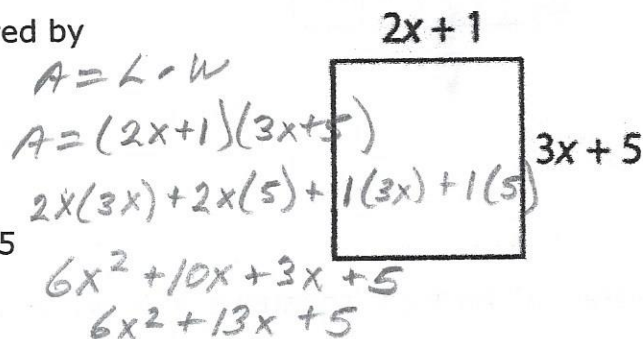 ed by
2x + 1
A = L · W
A = (2x+1)(3x+5)
3x + 5
2x(3x) + 2x(5) + 1(3x) + 1(5)
5
6x² + 10x + 3x + 5
6x² + 13x + 5